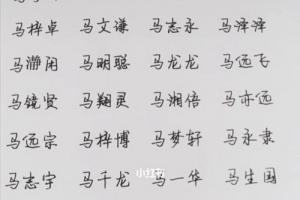 马梓卓 马文谦 马志永 马泽泽
马瀞闲 马明聪 马龙龙 马远飞
马镜贤 马翔灵 马湘倍 马亦远
马远宗 马梓博 马梦轩 马永隶
小红书
马志宇 马千龙 马一华 马生国